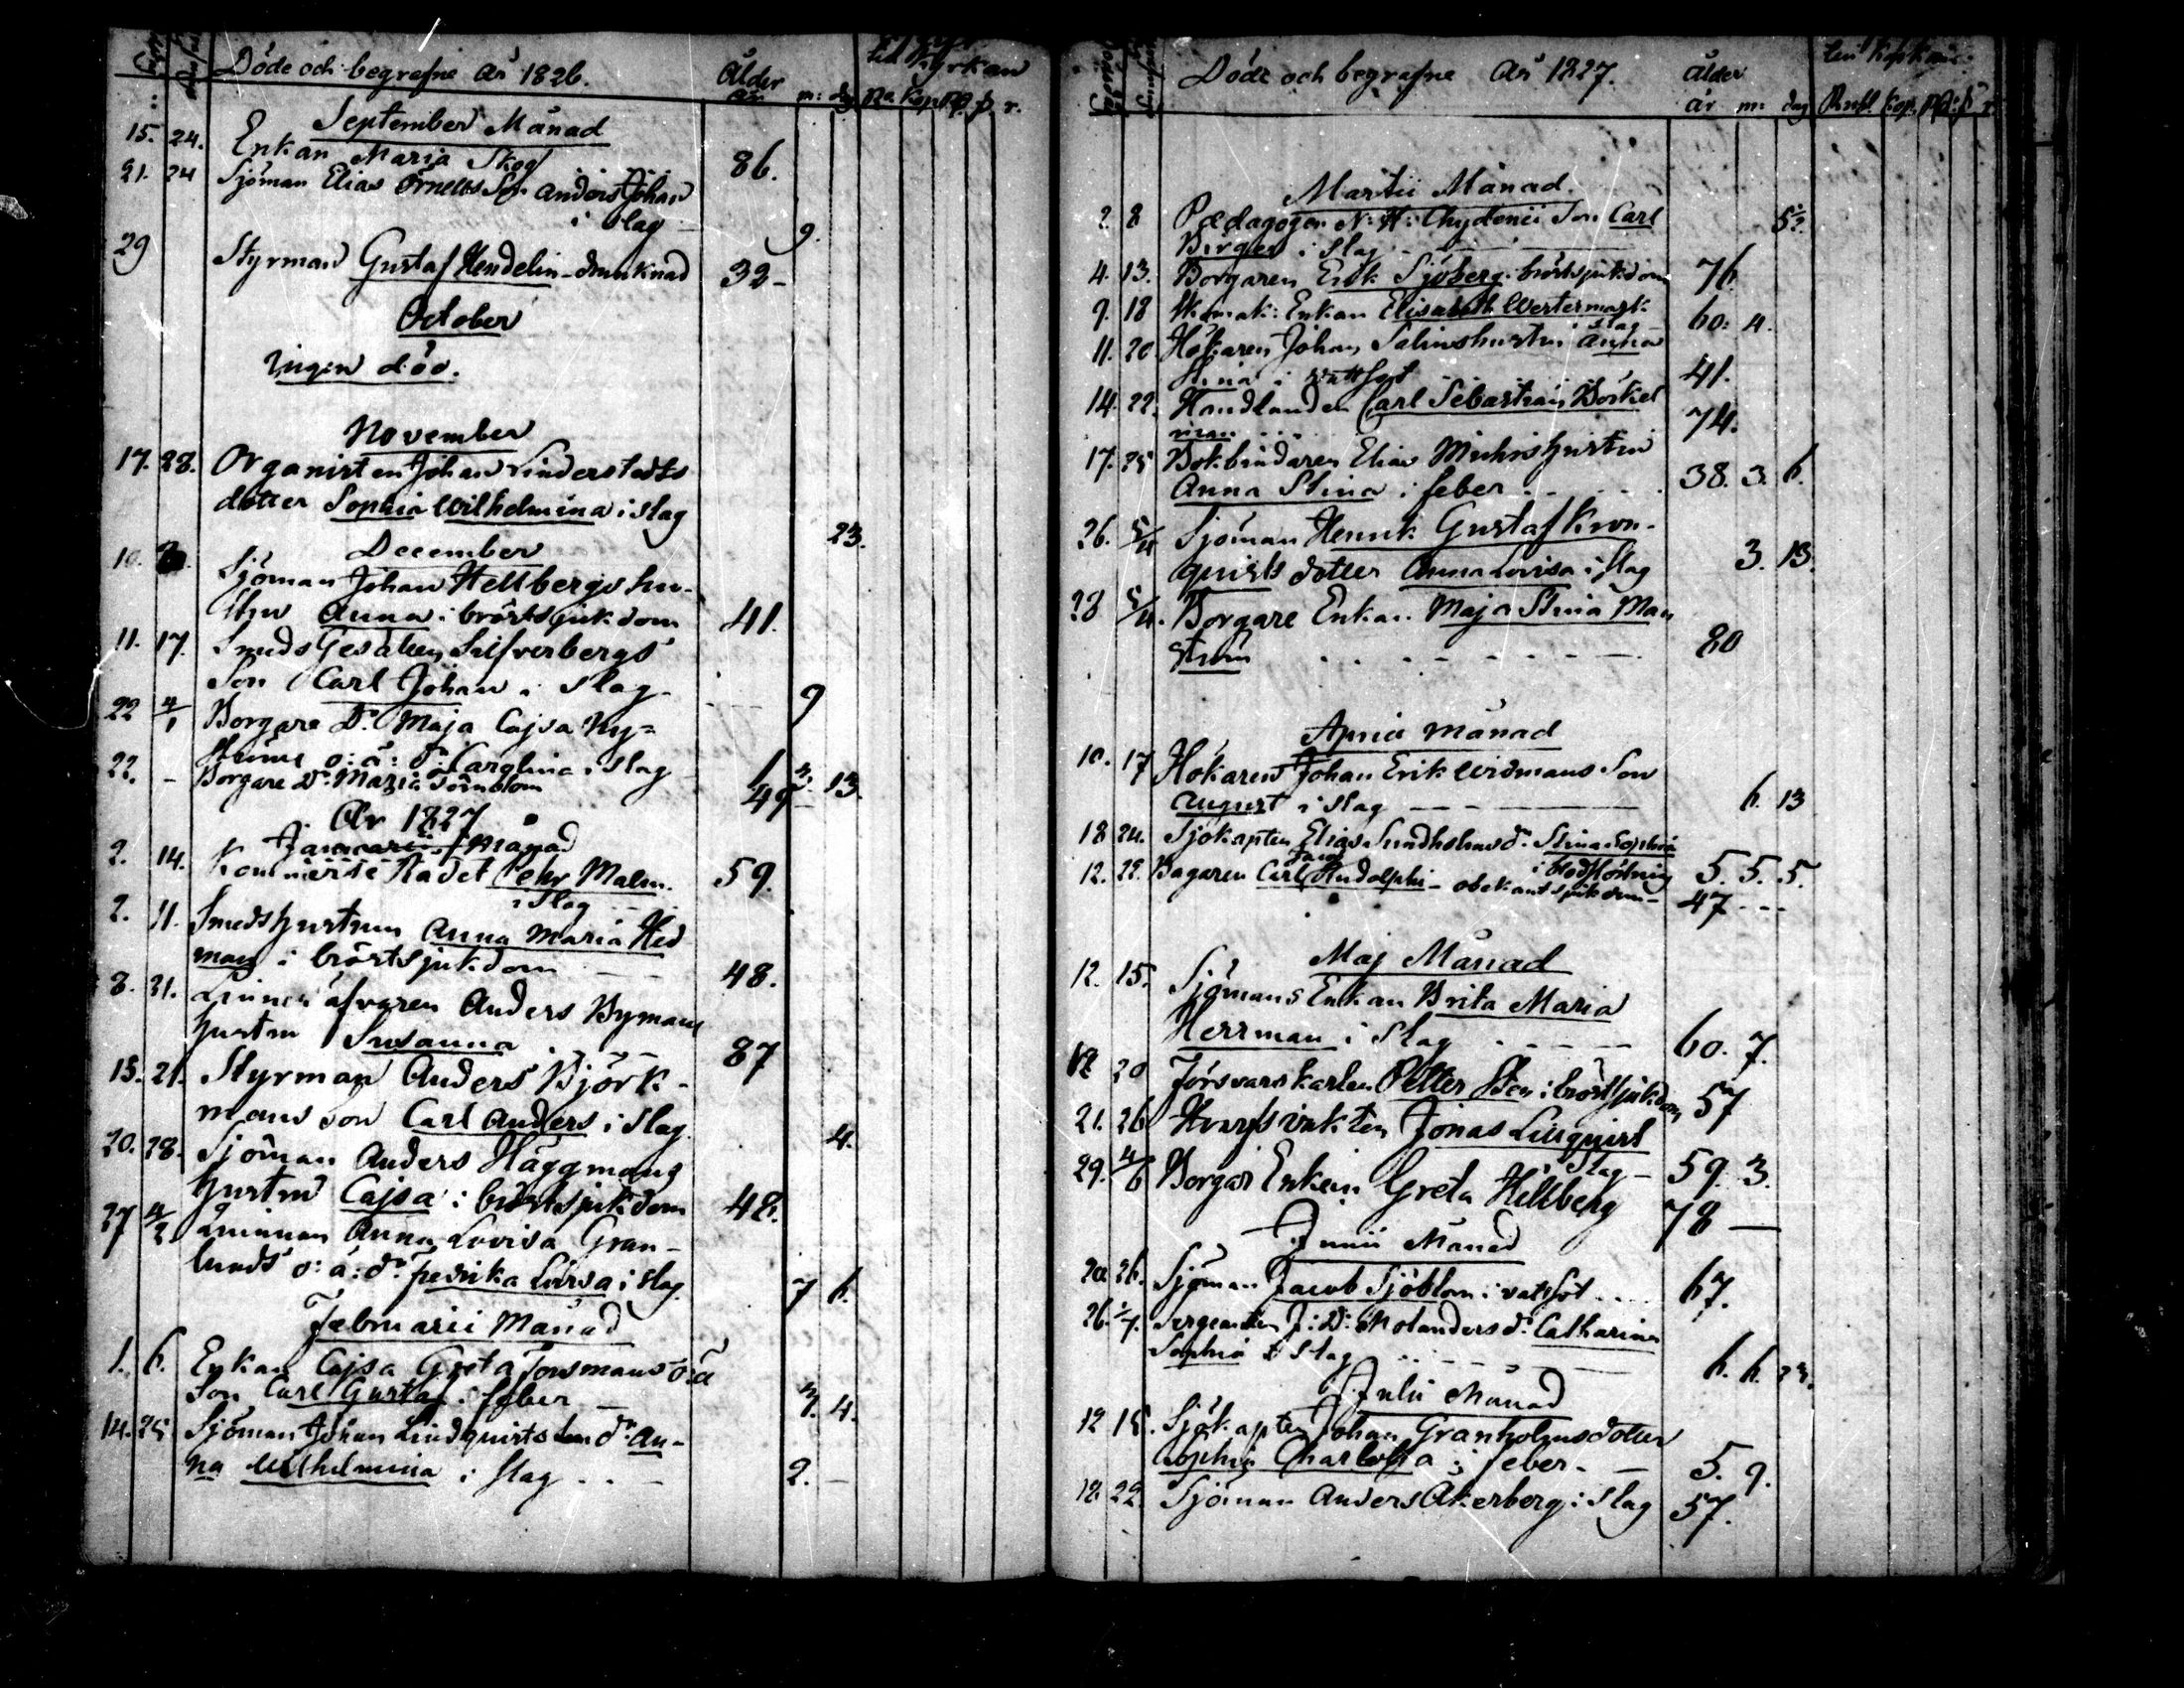 Döde och begrafne År 1826.
Ålder
till Kyrkan
år m: dag Ro. Kop. Rd. ß. r.
September Månad
15. 24. Enkan Maria Skog 86.
21. 24 Sjöman Elias Örnells Son Anders Johan
i slag 9.
29 Styrman Gustaf Hendelin - drunknad 32-
October
Ingen död.
November
17. 28. Organisten Johan Linderstedts
dotter Sophia Wilhelmina i slag 23.
December
10. Sjöman Johan Hellbergs hu-
stru Anna i bröstsjukdom 41.
11. 17. Smeds Gesällen Silfverbergs
Son Carl Johan i slag. 9
22 4/1 Borgare Dr. Maja Cajsa Ny=
ströms o: ä: dr. Carolina i slag 1 3. 13.
22. - Borgare Dr. Maria Törnblom 49 -
År 1827
Januarii Månad
2. 14. Kommerse Rådet Pehr Malm. 59.
i slag
2. 11. Smedshustrun Anna Maria Hed
man i bröstsjukdom 48.
8. 21. Anders Bymans
hustru Susanna 87
15. 21. Styrman Anders Björk-
mans son Carl Anders i slag. 4.
20. 28. Sjöman Anders Häggmans
hustru Cajsa i bröstsjukdom 48.
27 4/2 Quinnan Anna Lovisa Gran-
lunds o: ä: dr. Fedrika Lovisa i slag. 7 6.
Februarii Månad
1. 6. Enkan Cajsa Greta Forsmans o: ä
Son Carl Gustaf i feber 7. 4.
14. 25 Sjöman Johan Lindquists dr. An-
na Wilhelmina i slag 2. -
Döde och begrafne År 1827.
Ålder
år m: dag Rubl. Kop. Rd: ß r.
Martii Månad.
2. 8 Pædagogen N: H: Chydenii Son Carl
Birger i slag 5 1/2.
4. 13. Borgaren Erik Sjöberg i bröstsjukdom 76
9. 18 Skomak: Enkan Elisabeth Westermark
slag 60: 4.
11. 20 Hökaren Johan Salins hustru Anna
Stina i vattsot 41.
14. 22. Handlanden Carl Sebastian Börkel
man 74.
17. 25 Bokbindaren Elias Michis hustru
Anna Stina i feber 38. 3. 6.
26. 5/4 Sjöman Henrik Gustaf Kron-
quists dotter Anna Lovisa i slag 3. 13.
28 5/4. Borgare Enkan Maja Stina Man
ström 80
April Månad
10. 17 Hökaren Johan Erik Widmans Son
August i slag 6. 13
18 24. Sjökapten Elias Sundholms dr. Stina Sophia
i blodstörtning 5. 5. 5.
12. 22. Bagaren Carl Rudolphi - obekant sjukdom - 47 - - -
Maj Månad
12. 15. Sjömans Enkan Brita Maria
Herrman i slag 60. 7.
20 Försvarskarlen Petter Sten i bröstsjukdom 57
21. 26 Hvarfsvakten Jonas Lilqvist
slag - 59. 3.
29. 4/6 Borgar Enkan Greta Hellberg 78 -
Junii Månad
20 26. Sjöman Jacob Sjöblom i vattsot 67.
26. 1/7. Sergeanten J: D: Molanders dr. Catharina
Sophia i slag 6. 6. 23.
Julii Månad
12 15. Sjökapten Johan Granholms dotter
Sophia Charlotta i feber - 5. 9.
18. 22. Sjöman Anders Åkerberg i slag 57.